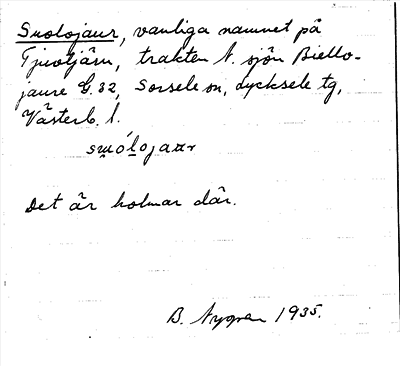 Suolojaur, vanliga namnet på
Tjuotjärn, trakten N. sjön Biello-
jaure G.32, Sorsele sn, Lycksele tg,
Västerb. l.
su̯ólojau̯r
Det är holmar där.
B. Nygren 1935.